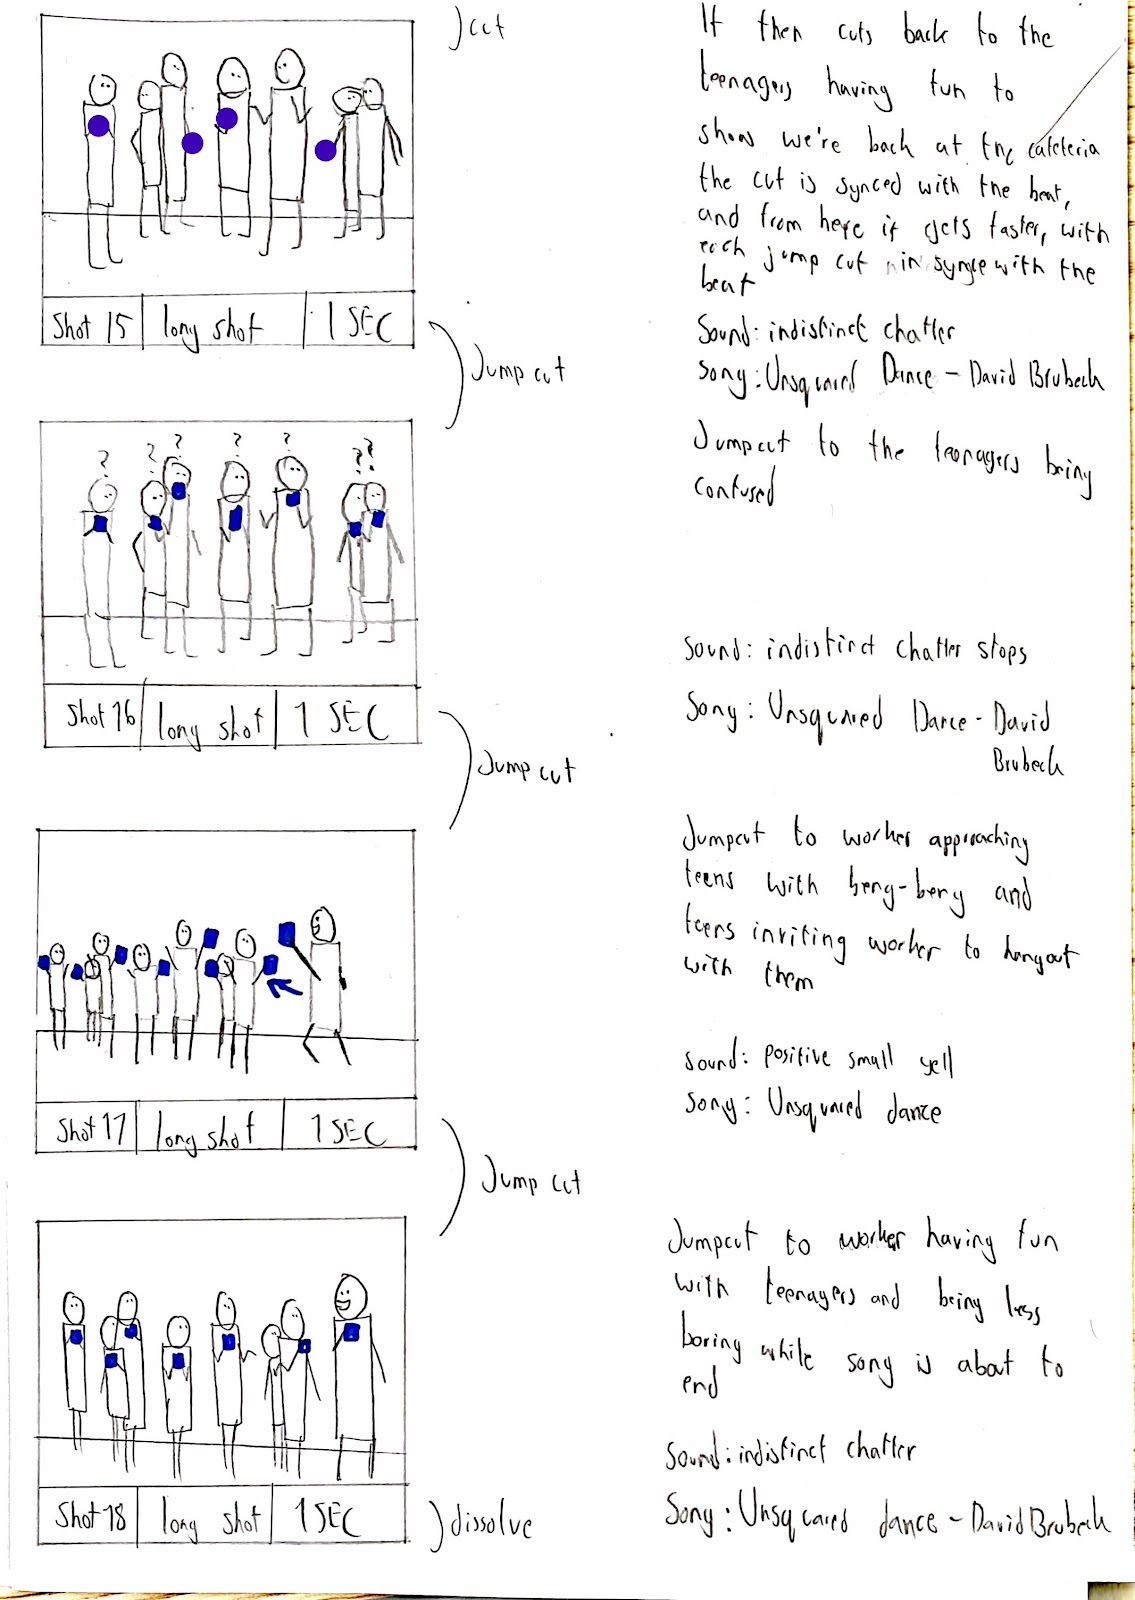 cut
It then cuts back to the
teenagers having fun to
show we're back at the cafeteria
the cut is synced with the beat,
and from here it gets faster, with
each jump cut in syngc with the
beat
Sound: indistinct chatter
Song: Unsquared Dance - David Brubeck
Shot 15 long shot 1 SEC
Jump cut
? ? ? ? ? ? ?
Jumpcut to the teenagers being
confused
Sound: indistinct chatter stops
Song: Unsquared Dance - David
Brubeck
Shot 16 long shot 1 SEC
Jump cut
Jumpcut to worker approaching
teens with beng-beng and
teens inviting worker to hangout
with them
Sound: positive small yell
Song: Unsquared dance
Shot 17 long shot 1 SEC
Jump cut
Jumpcut to worker having fun
with teenagers and being less
boring while song is about to
end
Sound: indistinct chatter
Song: Unsquared dance - David Brubeck
Shot 18 long shot 1 SEC
dissolve